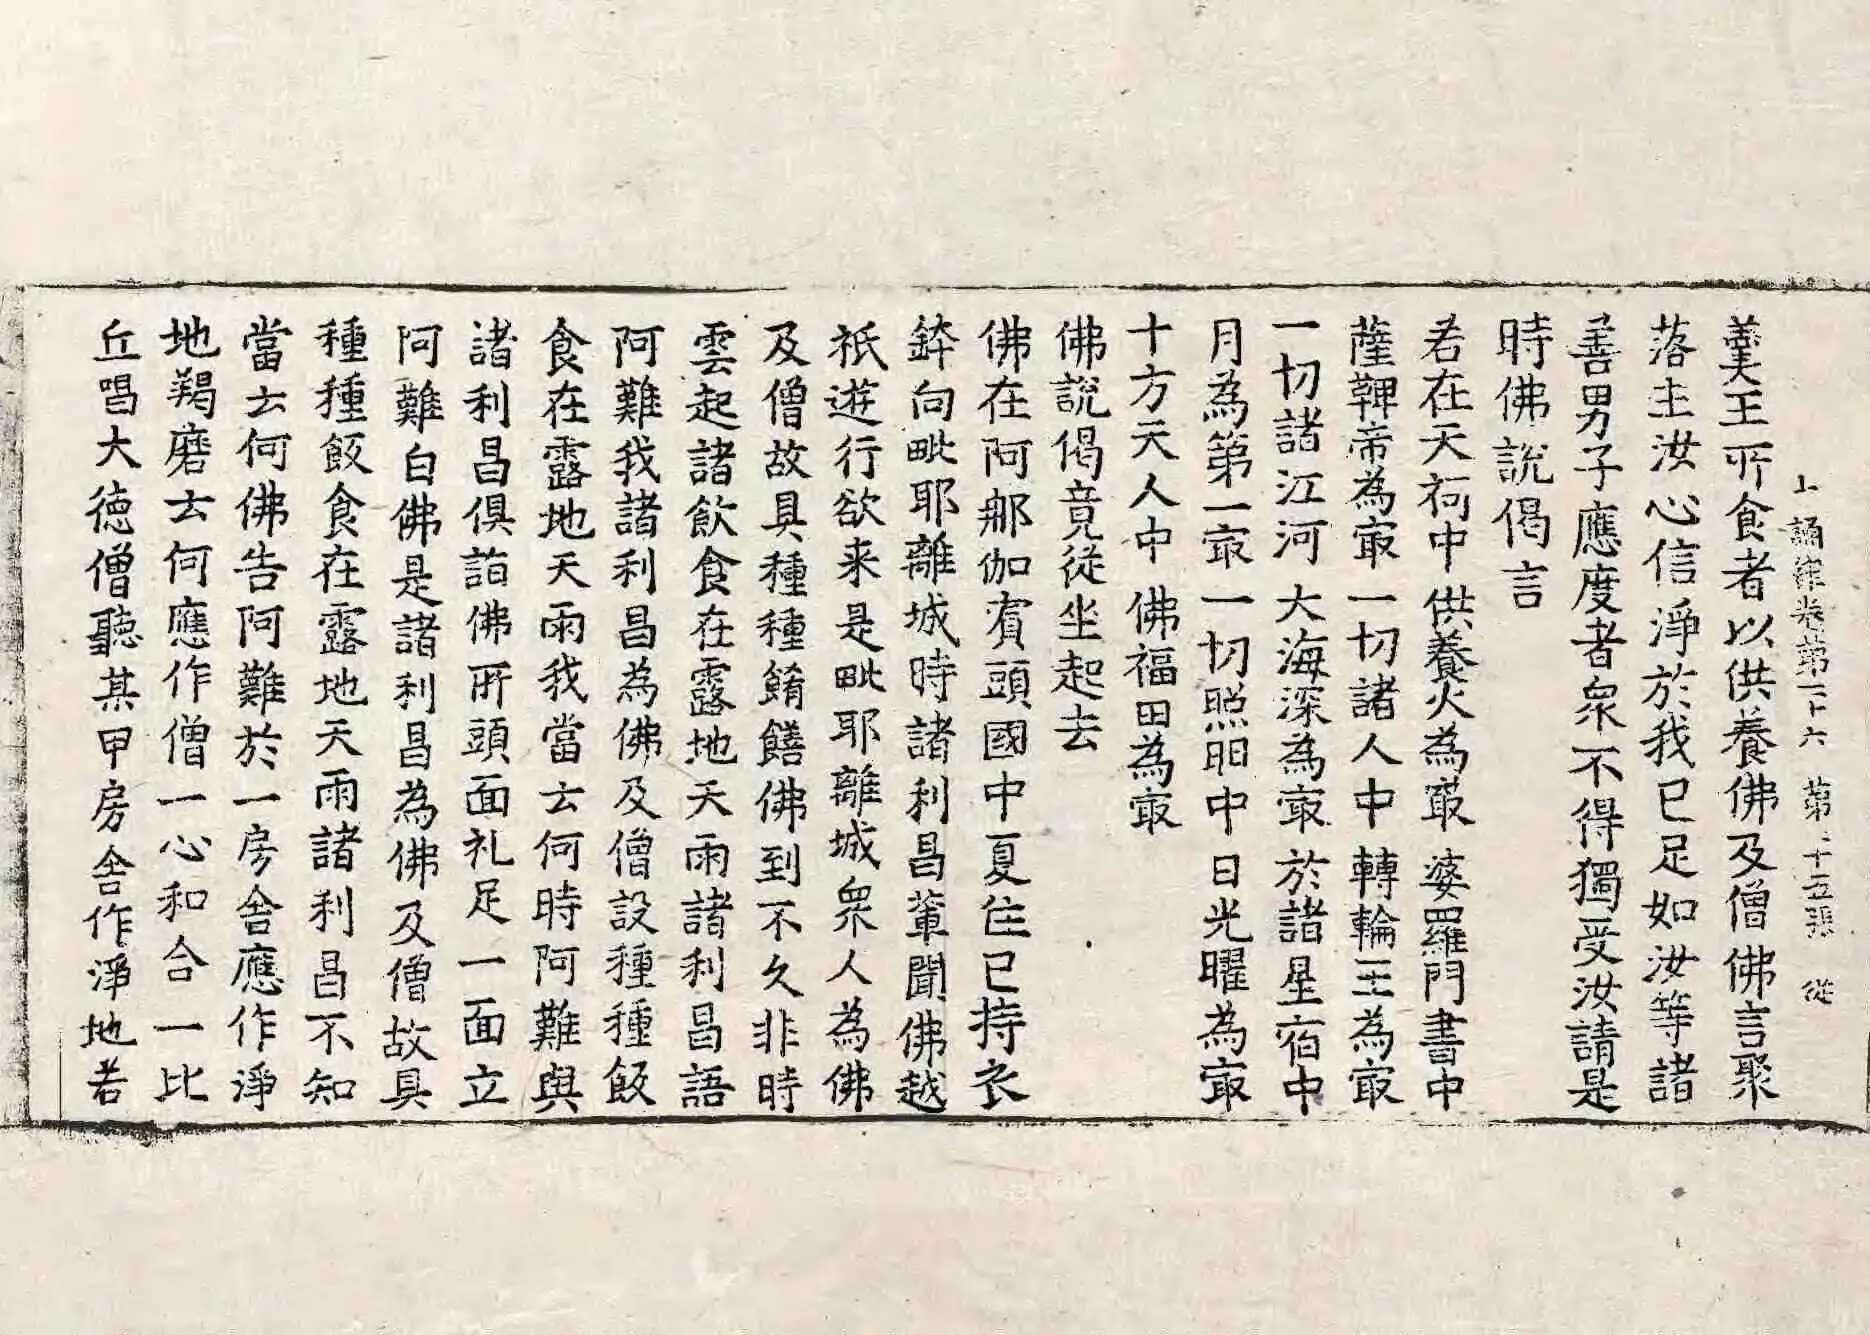 十誦律卷第二十六 第二十五張 從
羹王所食者以供養佛及僧佛言聚
落主汝心信淨於我已足如汝等諸
善男子應度者衆不得獨受汝請是
時佛說偈言
若在天祠中 供養火為㝡 婆羅門書中
薩鞞帝為㝡 一切諸人中 轉輪王為㝡
一切諸江河 大海深為㝡 於諸星宿中
月為第一㝡 一切照明中 日光曜為㝡
十方天人中 佛福田為㝡
佛說偈竟從坐起去
佛在阿那伽賔頭國中夏住已持衣
鉢向毗耶離城時諸利昌輩聞佛越
祇遊行欲来是毗耶離城衆人為佛
及僧故具種種餚饍佛到不久非時
雲起諸飲食在露地天雨諸利昌語
阿難我諸利昌為佛及僧設種種飯
食在露地天雨我當云何時阿難與
諸利昌俱詣佛所頭面礼足一面立
阿難白佛是諸利昌為佛及僧故具
種種飯食在露地天雨諸利昌不知
當云何佛告阿難於一房舍應作淨
地羯磨云何應作僧一心和合一比
丘唱大德僧聽某甲房舍作淨地若